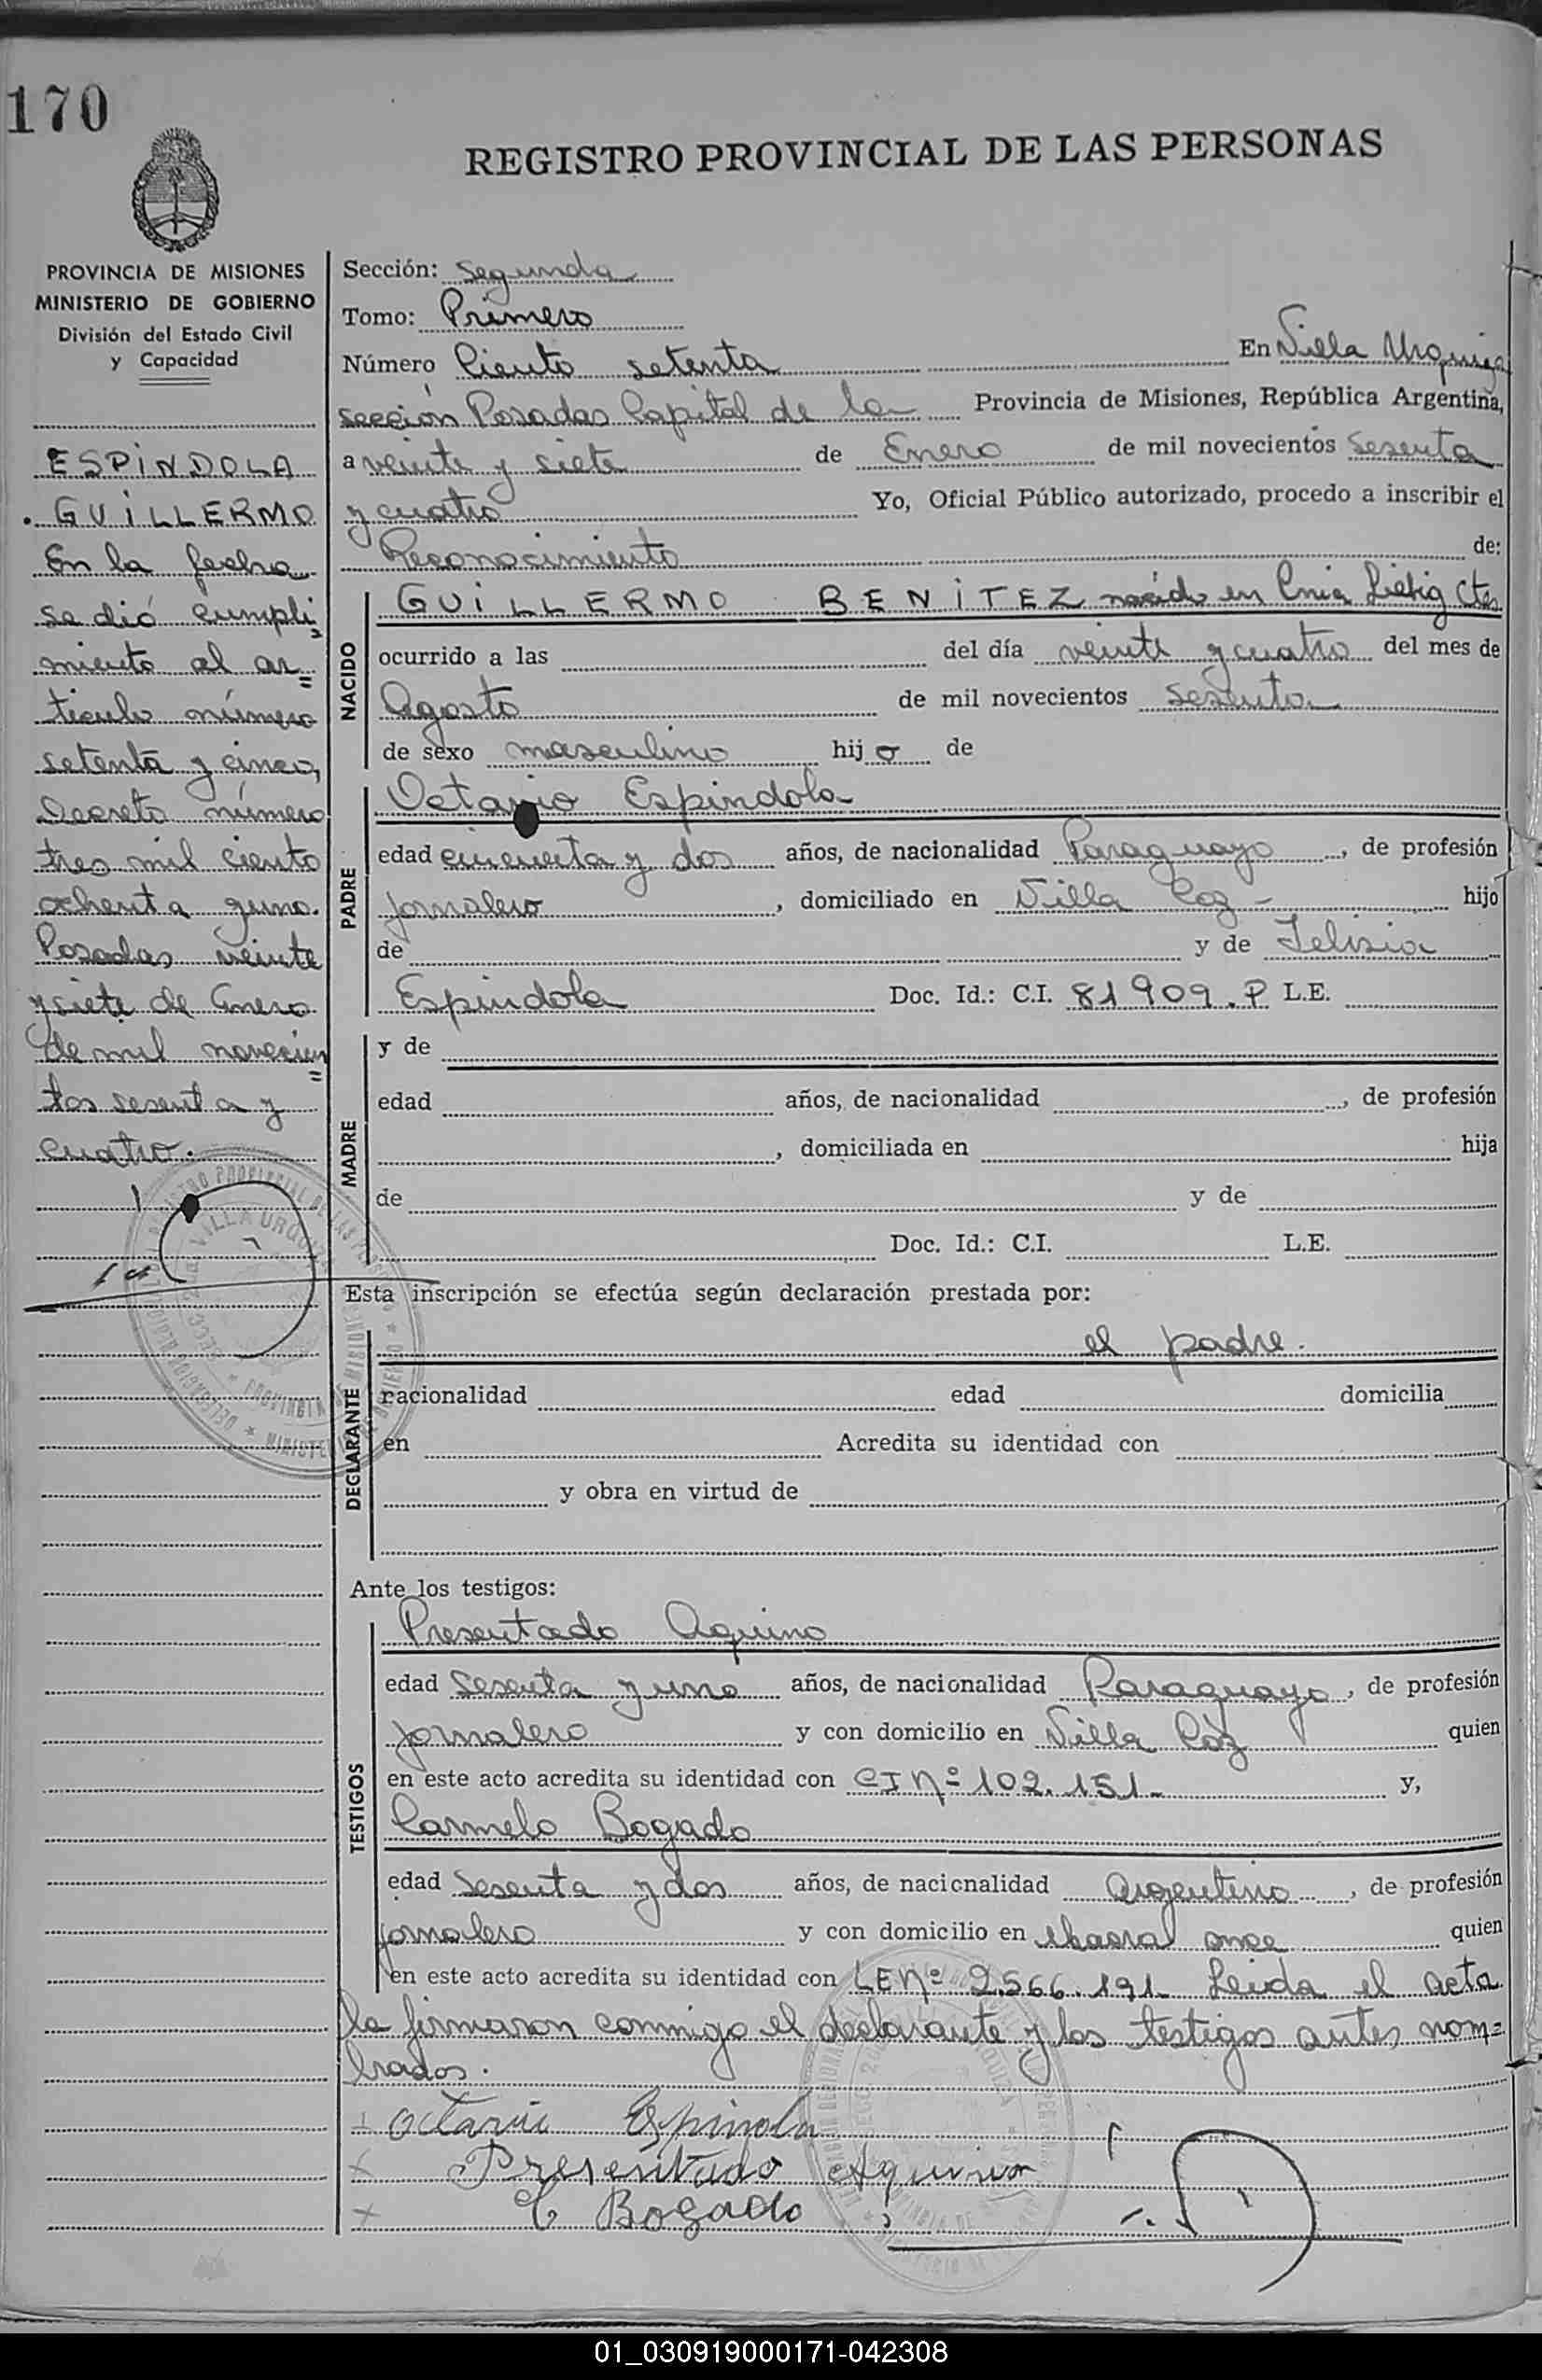 170
REGISTRO PROVINCIAL DE LAS PERSONAS
PROVINCIA DE MISIONES
MINISTERIO DE GOBIERNO
División del Estado Civil
y Capacidad
ESPINDOLA
GUILLERMO
En la fecha
se dió cumpli
miento al ar=
ticulo número
setenta y cinco,
Decreto número
tres mil ciento
ochenta y uno.
Posadas veinte
y siete de Enero
de mil novecien=
tos sesenta y
cuatro.
Sección: Segunda
Tomo: Primero
Número Ciento setenta En Villa Urquiza
sección Posadas Capital de la Provincia de Misiones, República Argentina,
a veinte y siete de Enero de mil novecientos sesenta
y cuatro Yo, Oficial Público autorizado, procedo a inscribir el
Reconocimiento de:
NACIDO
GUILLERMO BENITEZ nacido en Cnia Liebig Ctes
ocurrido a las del día veinte y cuatro del mes de
Agosto de mil novecientos sesenta
de sexo masculino hijo de
PADRE
Octavio Espindola
edad cincuenta y dos años, de nacionalidad Paraguayo, de profesión
jornalero, domiciliado en Villa Coz - hijo
de y de Felisia
Espindola Doc. Id.: C.I. 81909.P L.E.
MADRE
y de
edad años, de nacionalidad , de profesión
, domiciliada en hija
de y de
Doc. Id.: C.I. L.E.
Esta inscripción se efectúa según declaración prestada por:
DECLARANTE
el padre.
nacionalidad edad domicilia
en Acredita su identidad con
y obra en virtud de
Ante los testigos:
TESTIGOS
Presentado Aquino
edad sesenta y uno años, de nacionalidad Paraguayo, de profesión
jornalero y con domicilio en Villa Coz quien
en este acto acredita su identidad con CI Nº 102.151- y,
Carmelo Bogado
edad sesenta y dos años, de nacionalidad argentino, de profesión
jornalero y con domicilio en chacra once quien
en este acto acredita su identidad con LE Nº 2.566.191- Leida el acta
la firmaron conmigo el declarante y los testigos antes nom=
brados.
Octavio Espinola
Presentado Aquino
C Bogado
01_030919000171-042308